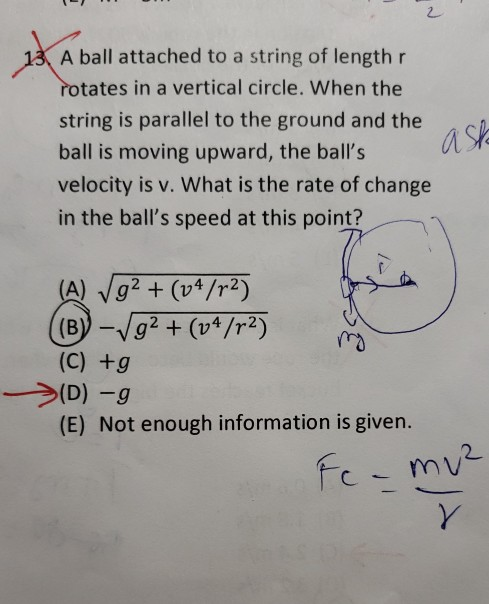 2
13. A ball attached to a string of length r
rotates in a vertical circle. When the
string is parallel to the ground and the
ball is moving upward, the ball's
velocity is v. What is the rate of change
in the ball's speed at this point?
ask
T
mg
(A) √g² + (v⁴/r²)
(B) −√g² + (v⁴/r²)
(C) +g
(D) −g
(E) Not enough information is given.
Fc = mv²/r